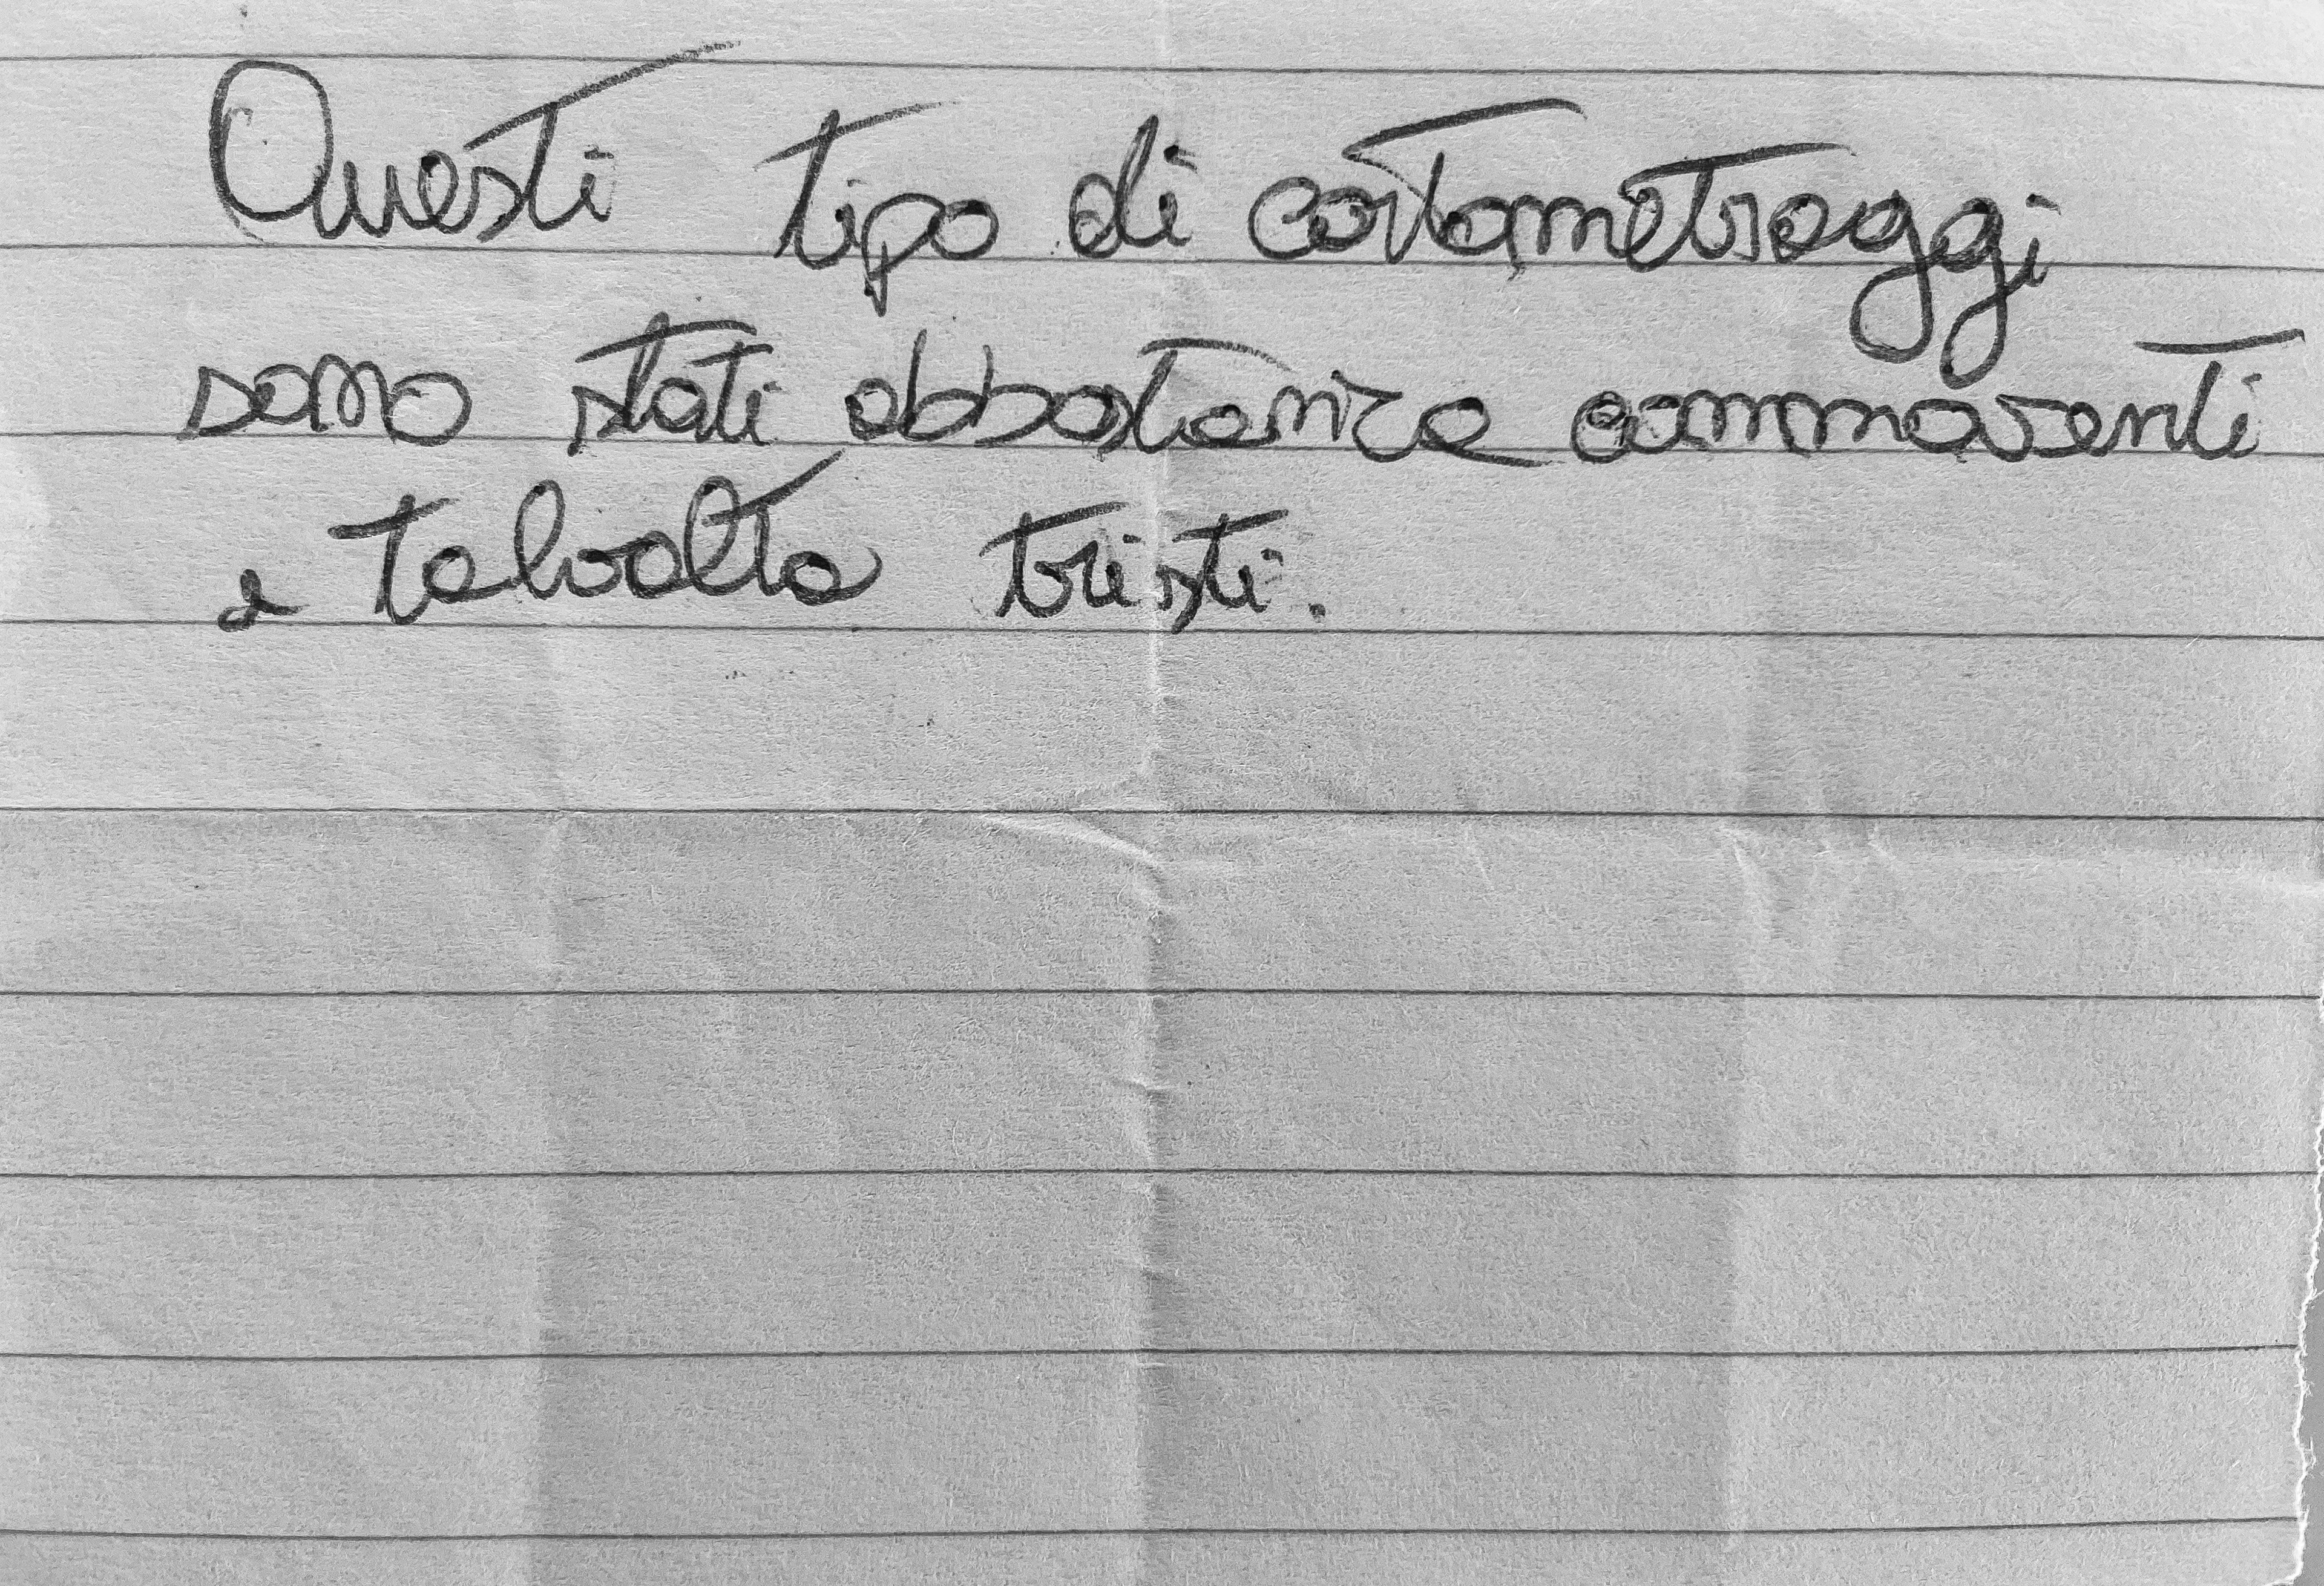 Questi tipo di cortometraggi
sono stati abbastanza commoventi
e talvolta tristi.